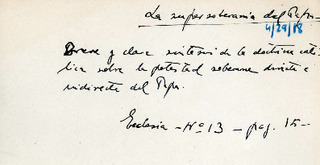 La supersoberanía del Papa—
4/29/18
Breve y clara síntesis de la doctrina cató-
lica sobre la potestad soberana directa e
indirecta del Papa.
Ecclesia — Nº 13 — pag. 15—